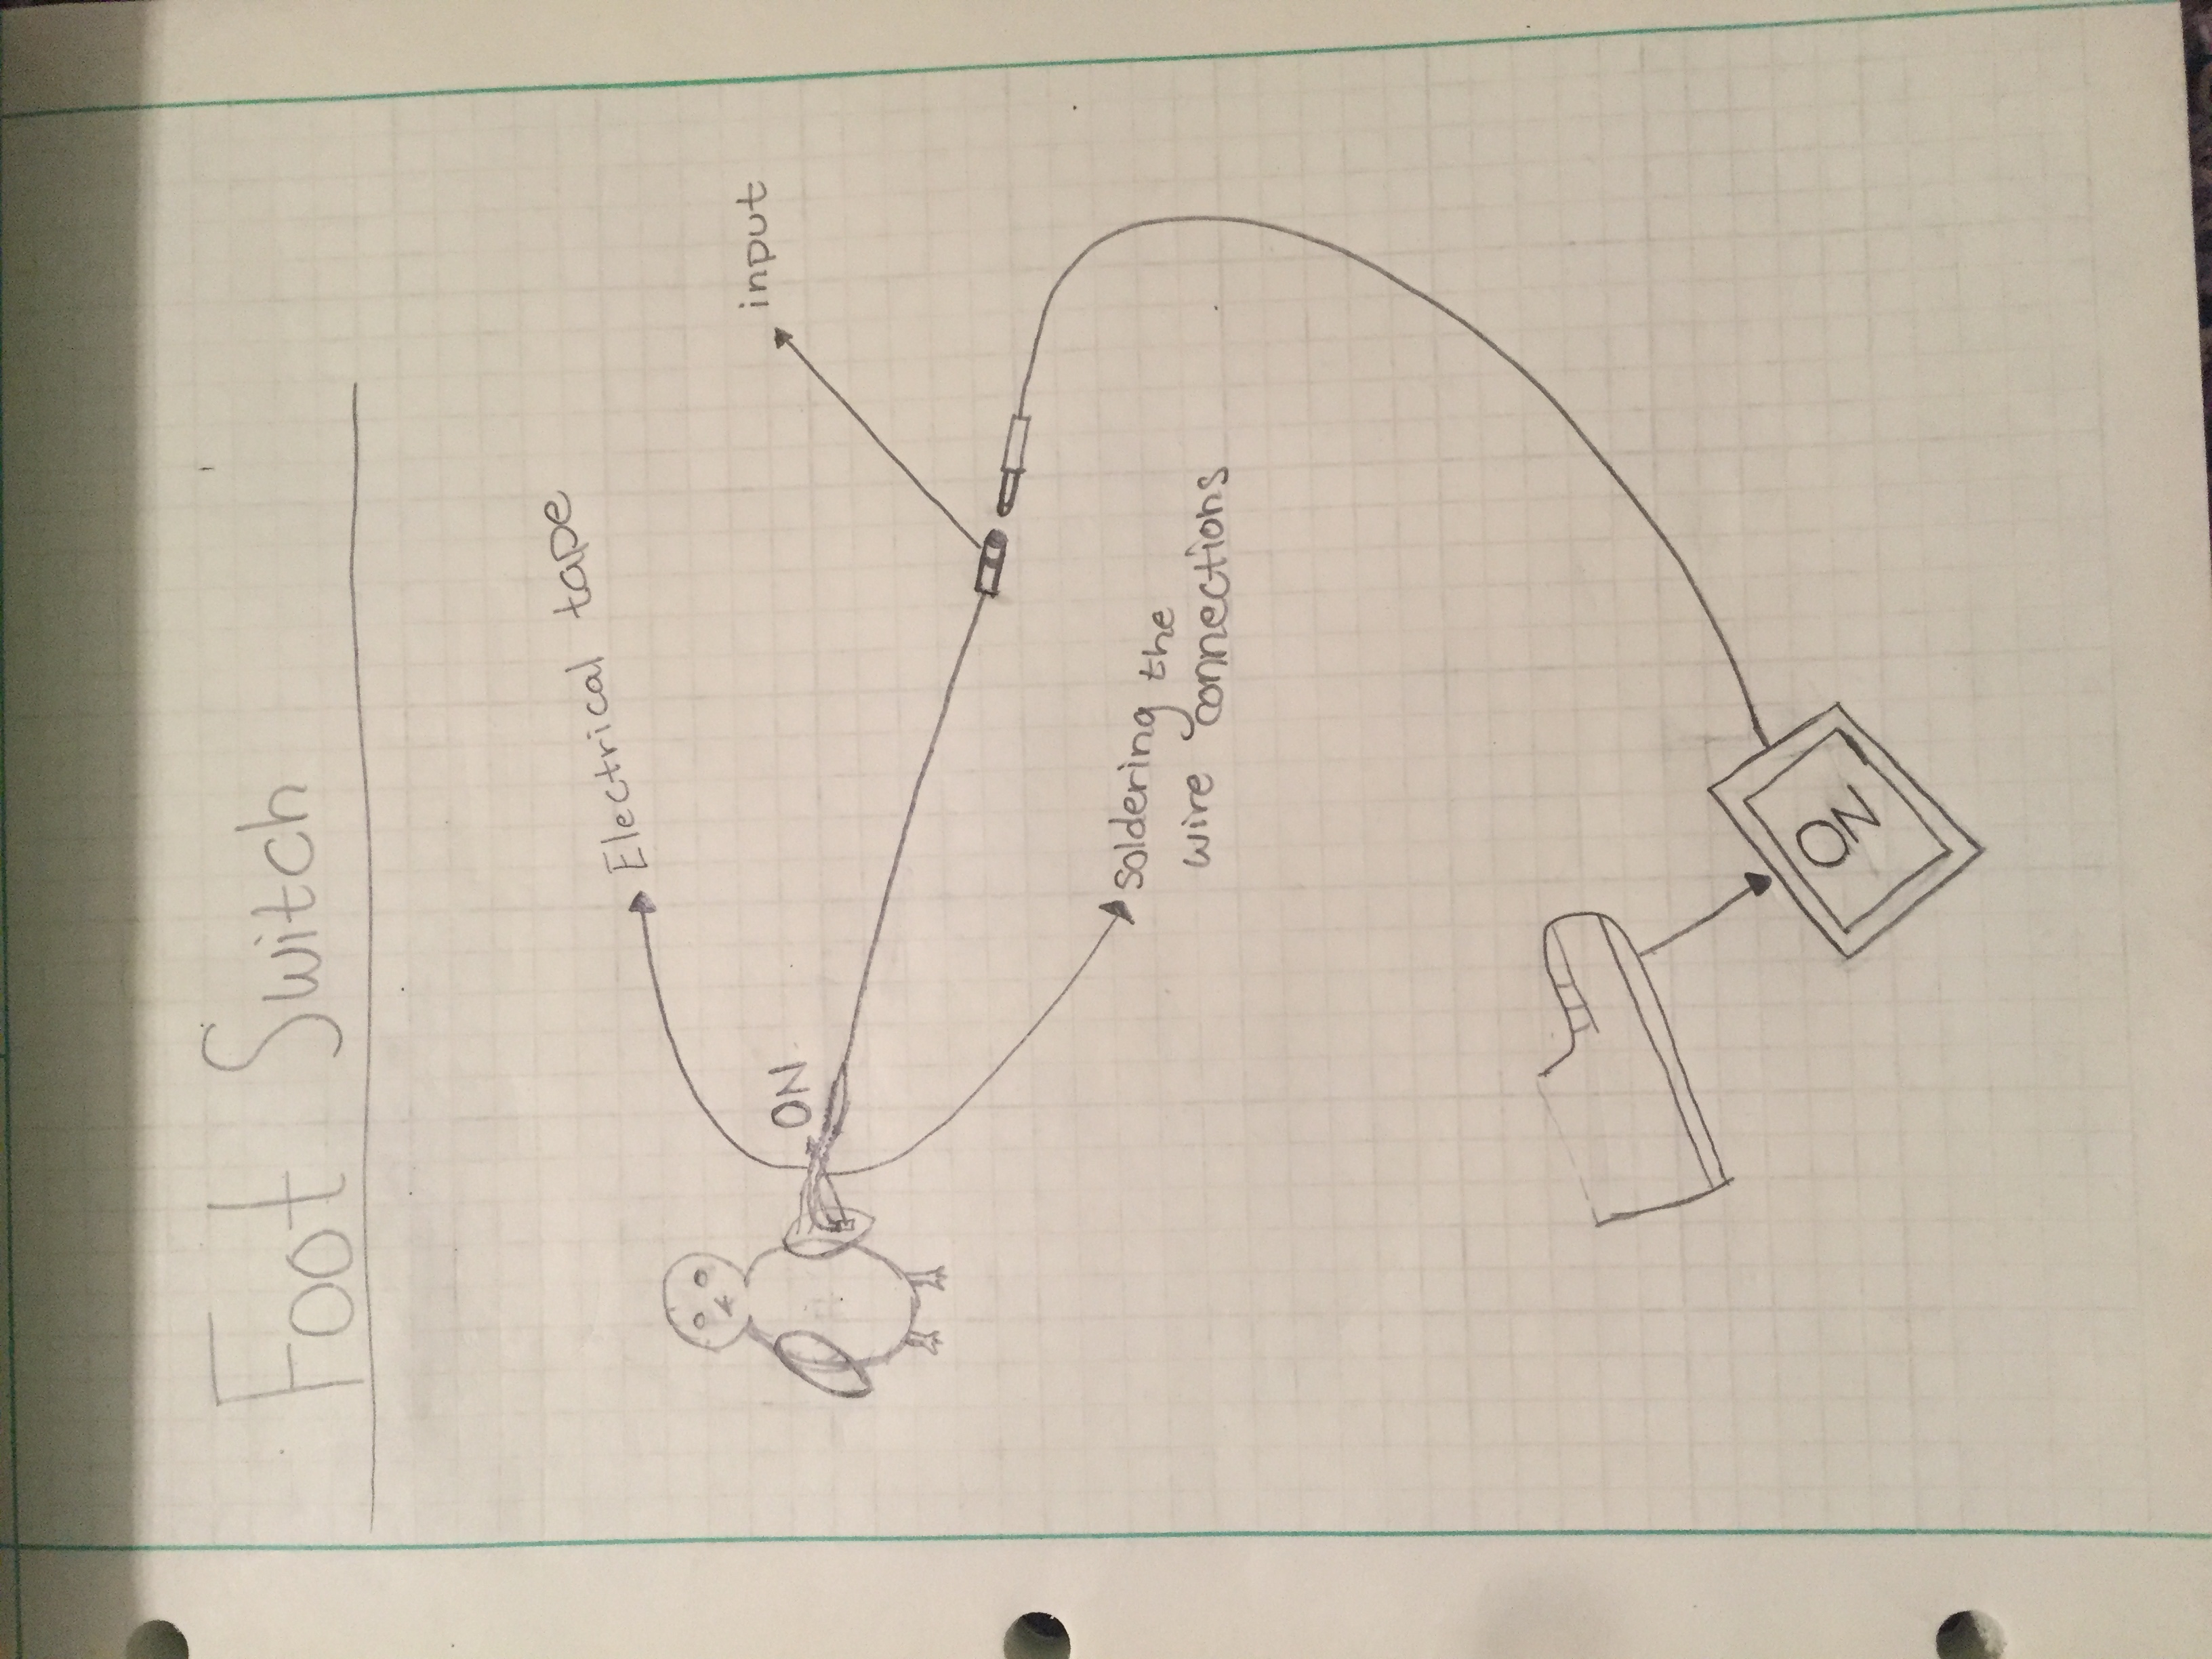 Foot Switch
Electrical tape
input
ON
soldering the
wire connections
ON